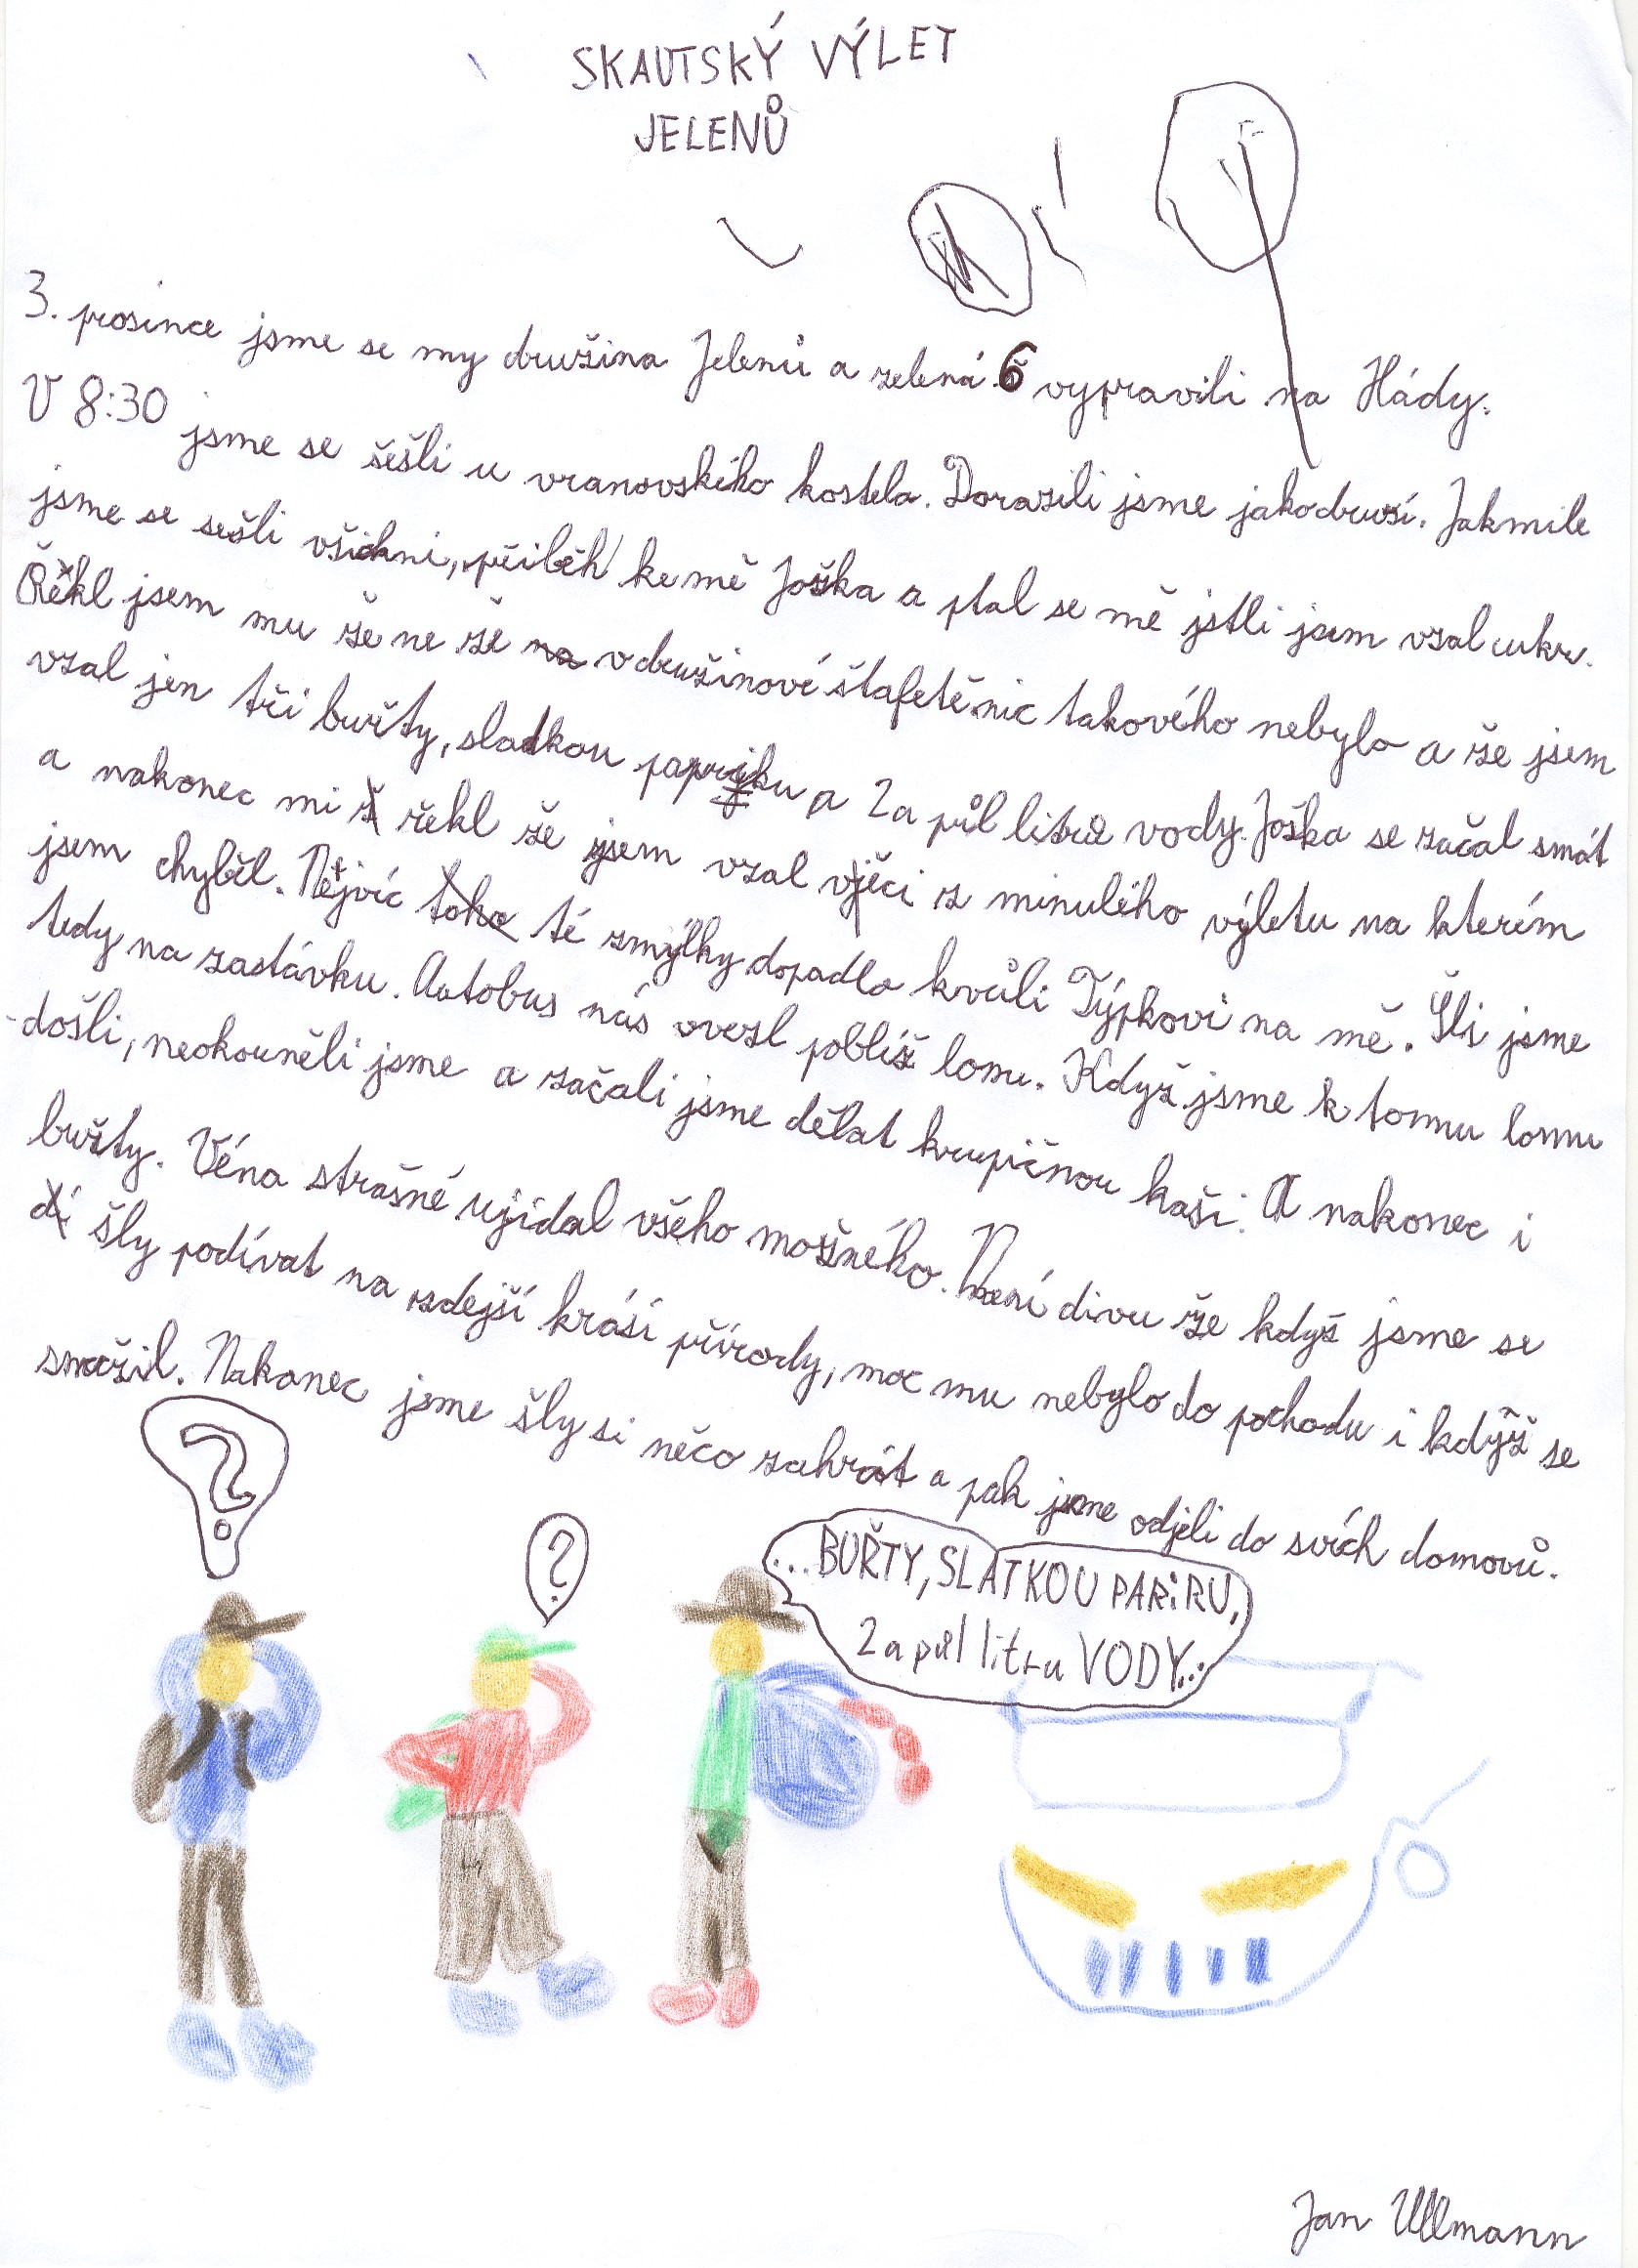 SKAUTSKÝ VÝLET
JELENŮ
3. prosince jsme se my družina Jelenů a zelená 6 vypravili na Hády.
V 8:30 jsme se šešli u vranovského kostela. Dorazili jsme jako druzí. Jakmile
jsme se sešli všichni, přiběhl ke mě Joška a ptal se mě jstli jsem vzal cukr.
Řekl jsem mu že ne že v družinové štafetě nic takového nebylo a že jsem
vzal jen tři buřty, sladkou papriku a 2 a půl litru vody. Joška se začal smát
a nakonec mi řekl že jsem vzal věci z minulého výletu na kterém
jsem chyběl. Nejvíc té zmýlky dopadlo kvůli Týpkovi na mě. Šli jsme
tedy na zastávku. Autobus nás ovezl poblíž lomu. Když jsme k tomu lomu
došli, neokouněli jsme a začali jsme dělat krupičnou kaši. A nakonec i
buřty. Véna strašné ujídal všeho možného. Není divu že když jsme se
šly podívat na zdejší krásí přírody, moc mu nebylo do pochodu i když se
smažil. Nakonec jsme šly si něco zahrát a pak jsme odjeli do svích domovů.
?
?
...BUŘTY, SLATKOU PARIRU,
2 a půl litru VODY...
Jan Ullmann